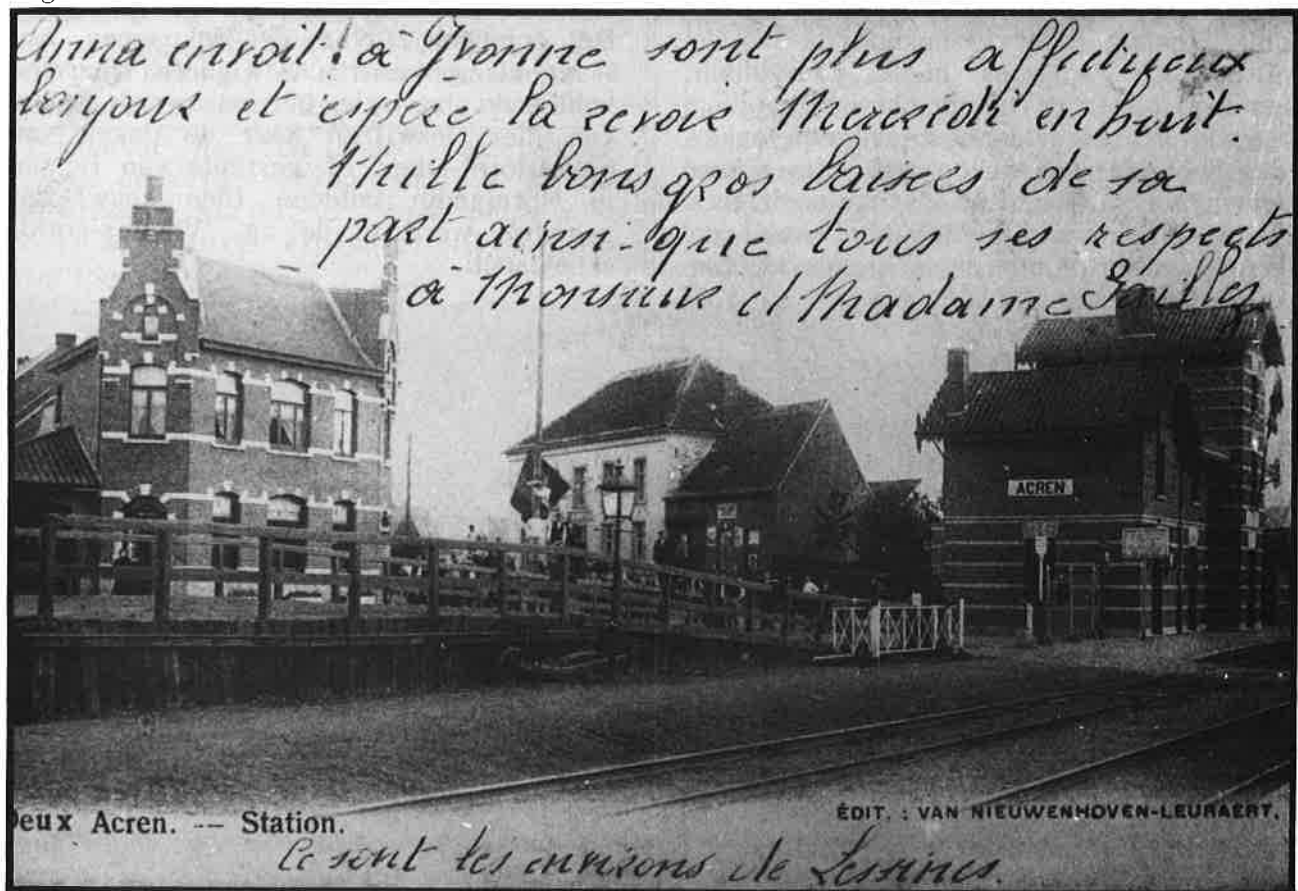 Anna envoit à Yvonne sont plus affectueux
bonjour et espere la revoir Mercredi en huit
Mille bons gros baisers de sa
part ainsi que tous ses respects
à Monsieur et Madame
ACREN
Deux Acren. — Station.
ÉDIT. : VAN NIEUWENHOVEN-LEURAERT.
Ce sont les environs de Lessines.